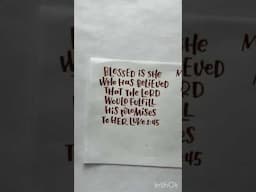 BLESSED IS SHE
WHO HAS BELIEVED
THAT THE LORD
WOULD FULFILL
HIS PROMISES
TO HER. LUKE 1:45